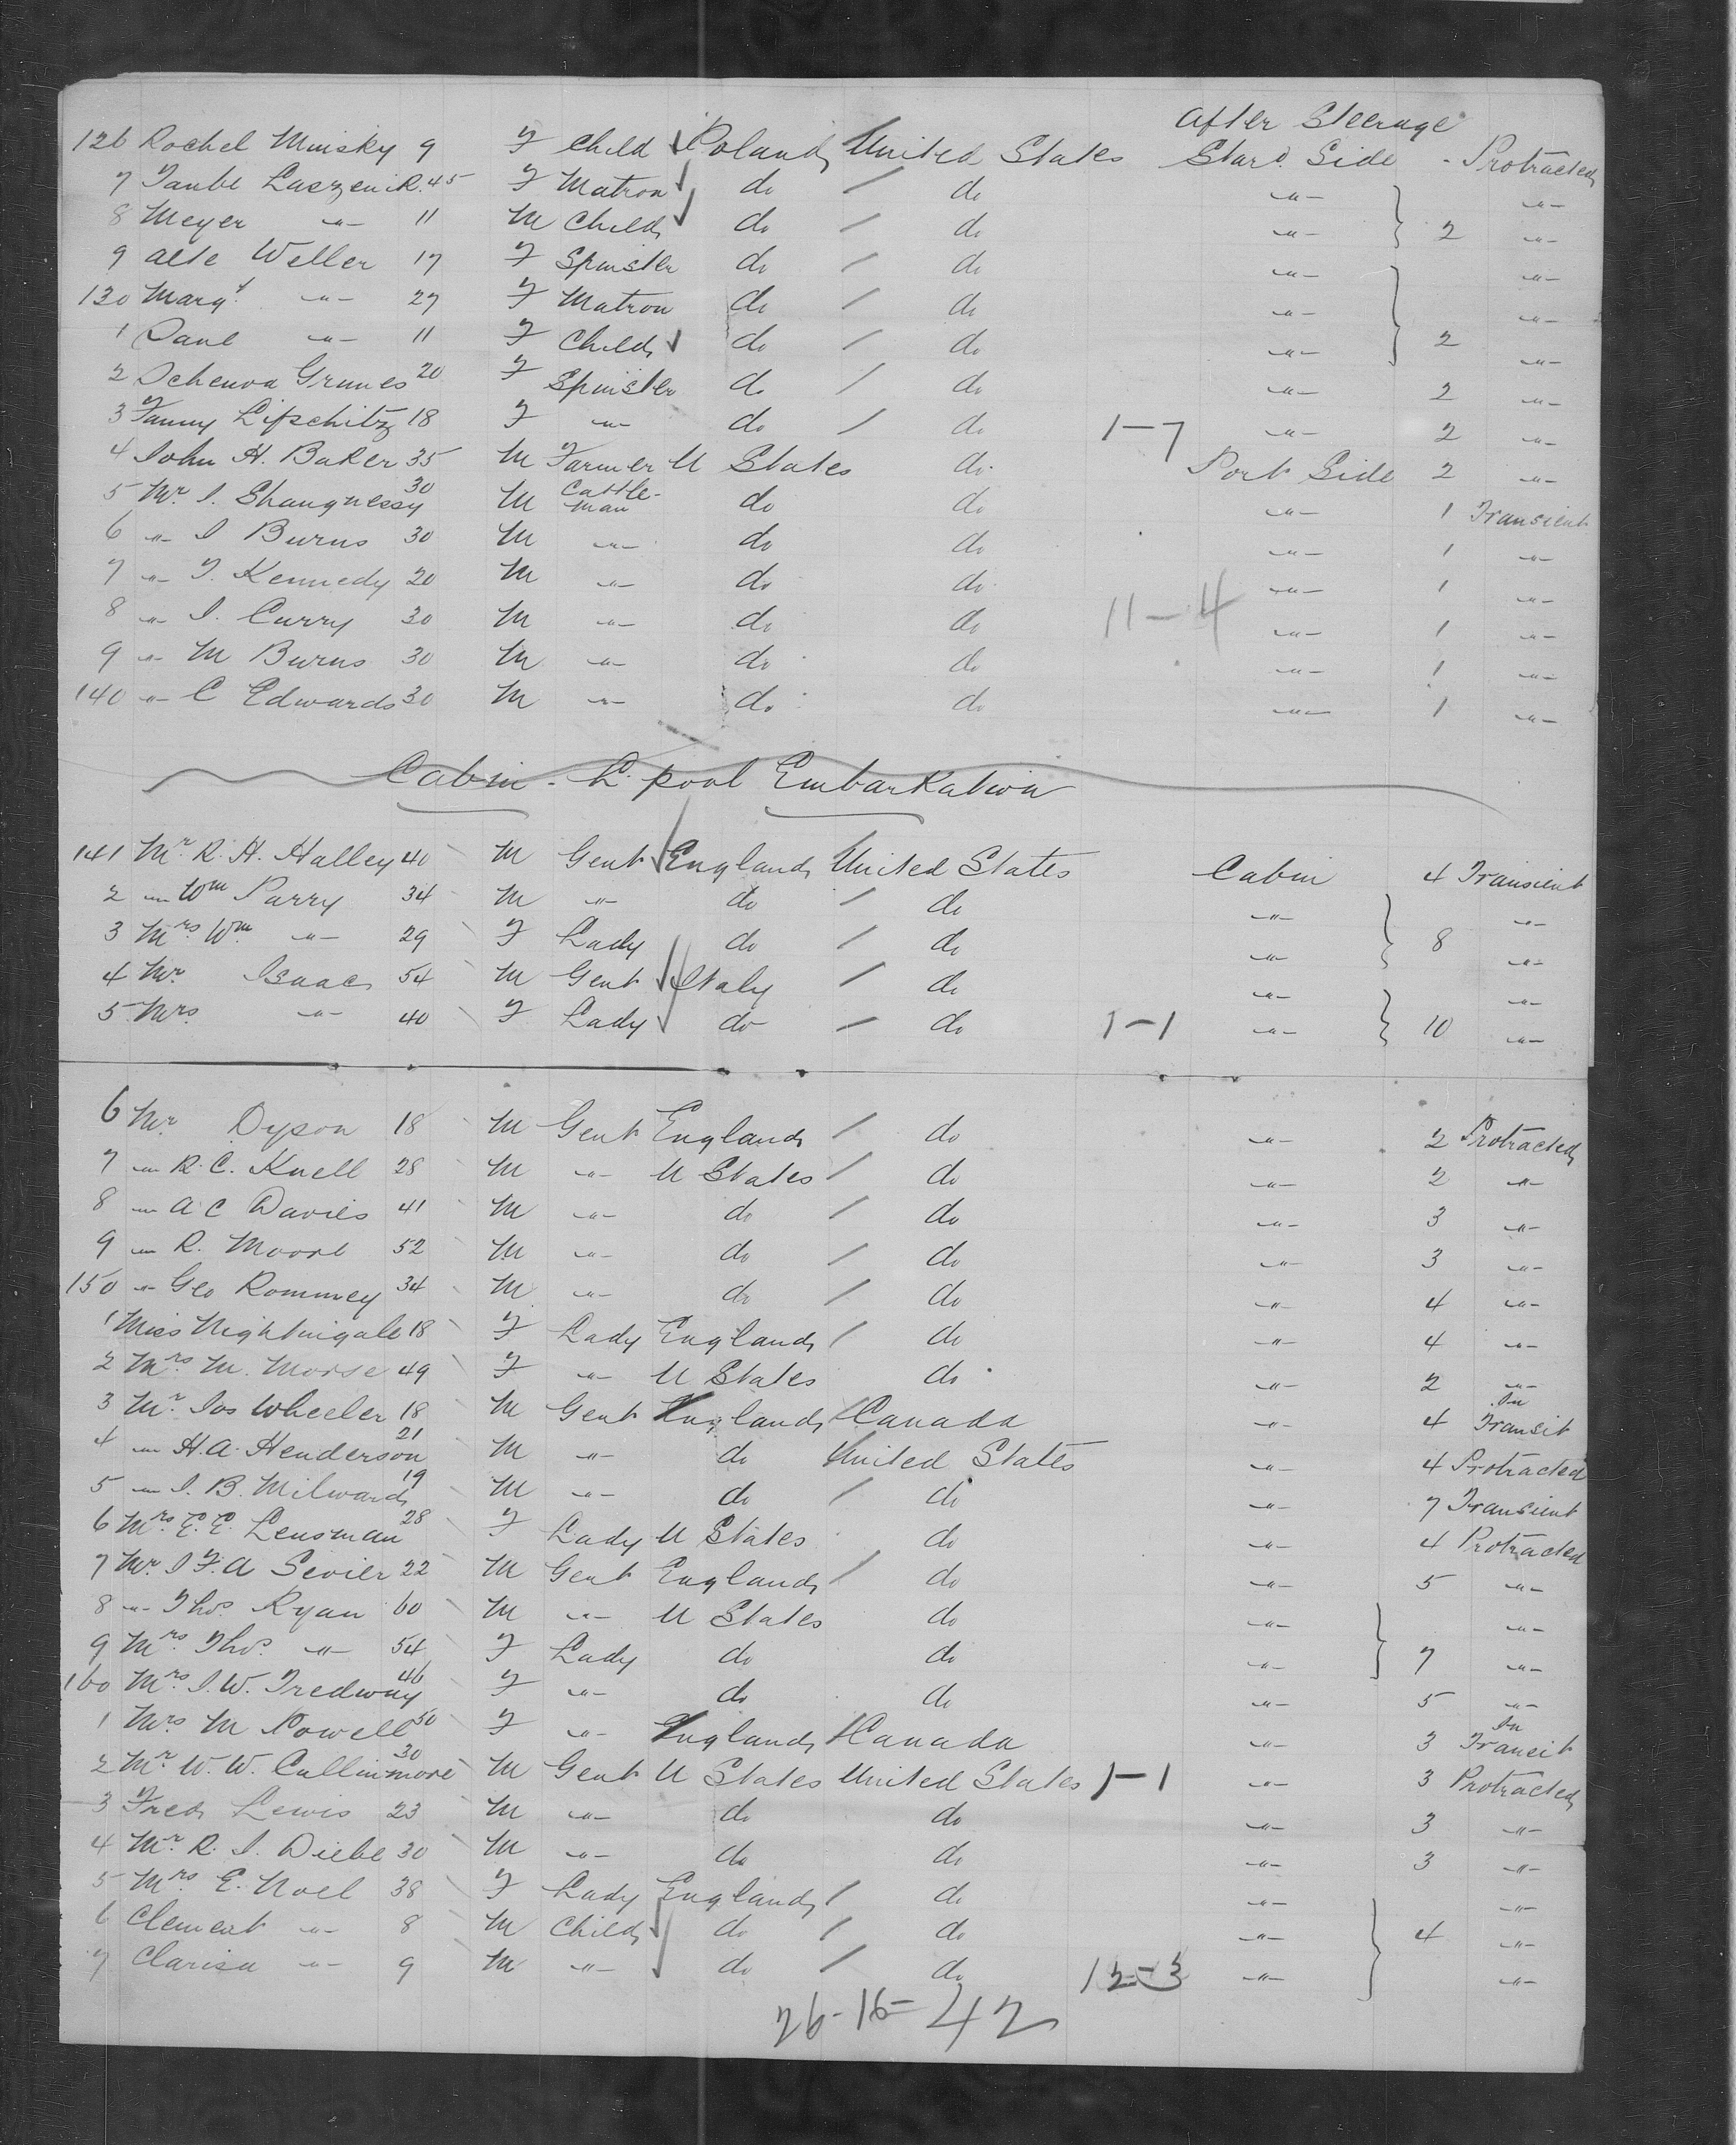 After Steerage
126 Rochel Minsky 9 F Child Poland United States Star'd Side - Protracted
7 Taube Laszenik. 45 F Matron do / do -"- -"-
8 Meyer -"- 11 M Child do / do -"- 2 -"-
9 Alte Weller 17 F Spinster do / do -"- -"-
130 Margt -"- 27 F Matron do / do -"- -"-
1 -"- 11 F Child do / do -"- 2 -"-
2 Grunes 20 F Spinster do / do -"- 2 -"-
3 Fanny Lipschitz 18 F -"- do / do 1-7 -"- 2 -"-
4 John H. Baker 35 M Farmer U States do Port Side 2 -"-
5 Mr. J. Shaugnessy 30 M Cattle-man do do -"- 1 Transient
6 -"- J Burns 30 M -"- do do -"- 1 -"-
7 -"- T. Kennedy 20 M -"- do do -"- 1 -"-
8 -"- J. Curry 30 M -"- do do 11-4 -"- 1 -"-
9 -"- M Burns 30 M -"- do do -"- 1 -"-
140 -"- C Edwards 30 M -"- do do -"- 1 -"-
Cabin - L'pool Embarkation
141 Mr. R. H. Halley 40 M Gent England United States Cabin 4 Transient
2 -"- Wm Parry 34 M -"- do / do -"- -"-
3 Mrs Wm -"- 29 F Lady do / do -"- 8 -"-
4 Mr. Isaac 54 M Gent Italy / do -"- -"-
5 Mrs. -"- 40 F Lady do / do 1-1 -"- 10 -"-
6 Mr. Dyson 18 M Gent England / do -"- 2 Protracted
7 -"- R. C. Knell 28 M -"- U States / do -"- 2 -"-
8 -"- A C Davies 41 M -"- do / do -"- 3 -"-
9 -"- R. Moore 52 M -"- do / do -"- 3 -"-
150 -"- Geo Rommey 34 M -"- do / do -"- 4 -"-
1 Miss Nightingale 18 F Lady England / do -"- 4 -"-
2 Mrs. M. Morse 49 F -"- U States do -"- 2 -"-
3 Mr. Jos Wheeler 18 M Gent England Canada -"- 4 In Transit
4 -"- H. A. Henderson 21 M -"- do United States -"- 4 Protracted
5 -"- J. B. Milward 19 M -"- do / do -"- 7 Transient
6 Mrs. E. E. Lensman 28 F Lady U States do -"- 4 Protracted
7 Mr. J F. A Sevier 22 M Gent England / do -"- 5 -"-
8 -"- Thos. Ryan 60 M -"- U States do -"- -"-
9 Mrs. Thos. -"- 54 F Lady do do -"- 7 -"-
160 Mrs. J. W. Tredway 46 F -"- do do -"- 5 -"-
1 Mrs M Powell 50 F -"- England Canada -"- 3 In Transit
2 Mr W. W. Cullinmore 30 M Gent U States United States 1-1 -"- 3 Protracted
3 Fred Lewis 23 M -"- do do -"- 3 -"-
4 Mr. R. J. Diebe 30 M -"- do do -"- 3 -"-
5 Mrs E. Noel 38 F Lady England / do -"- -"-
6 Clement -"- 8 M Child do / do -"- 4 -"-
7 Clarisa -"- 9 M -"- do / do 12-3 -"- -"-
26-16= 42